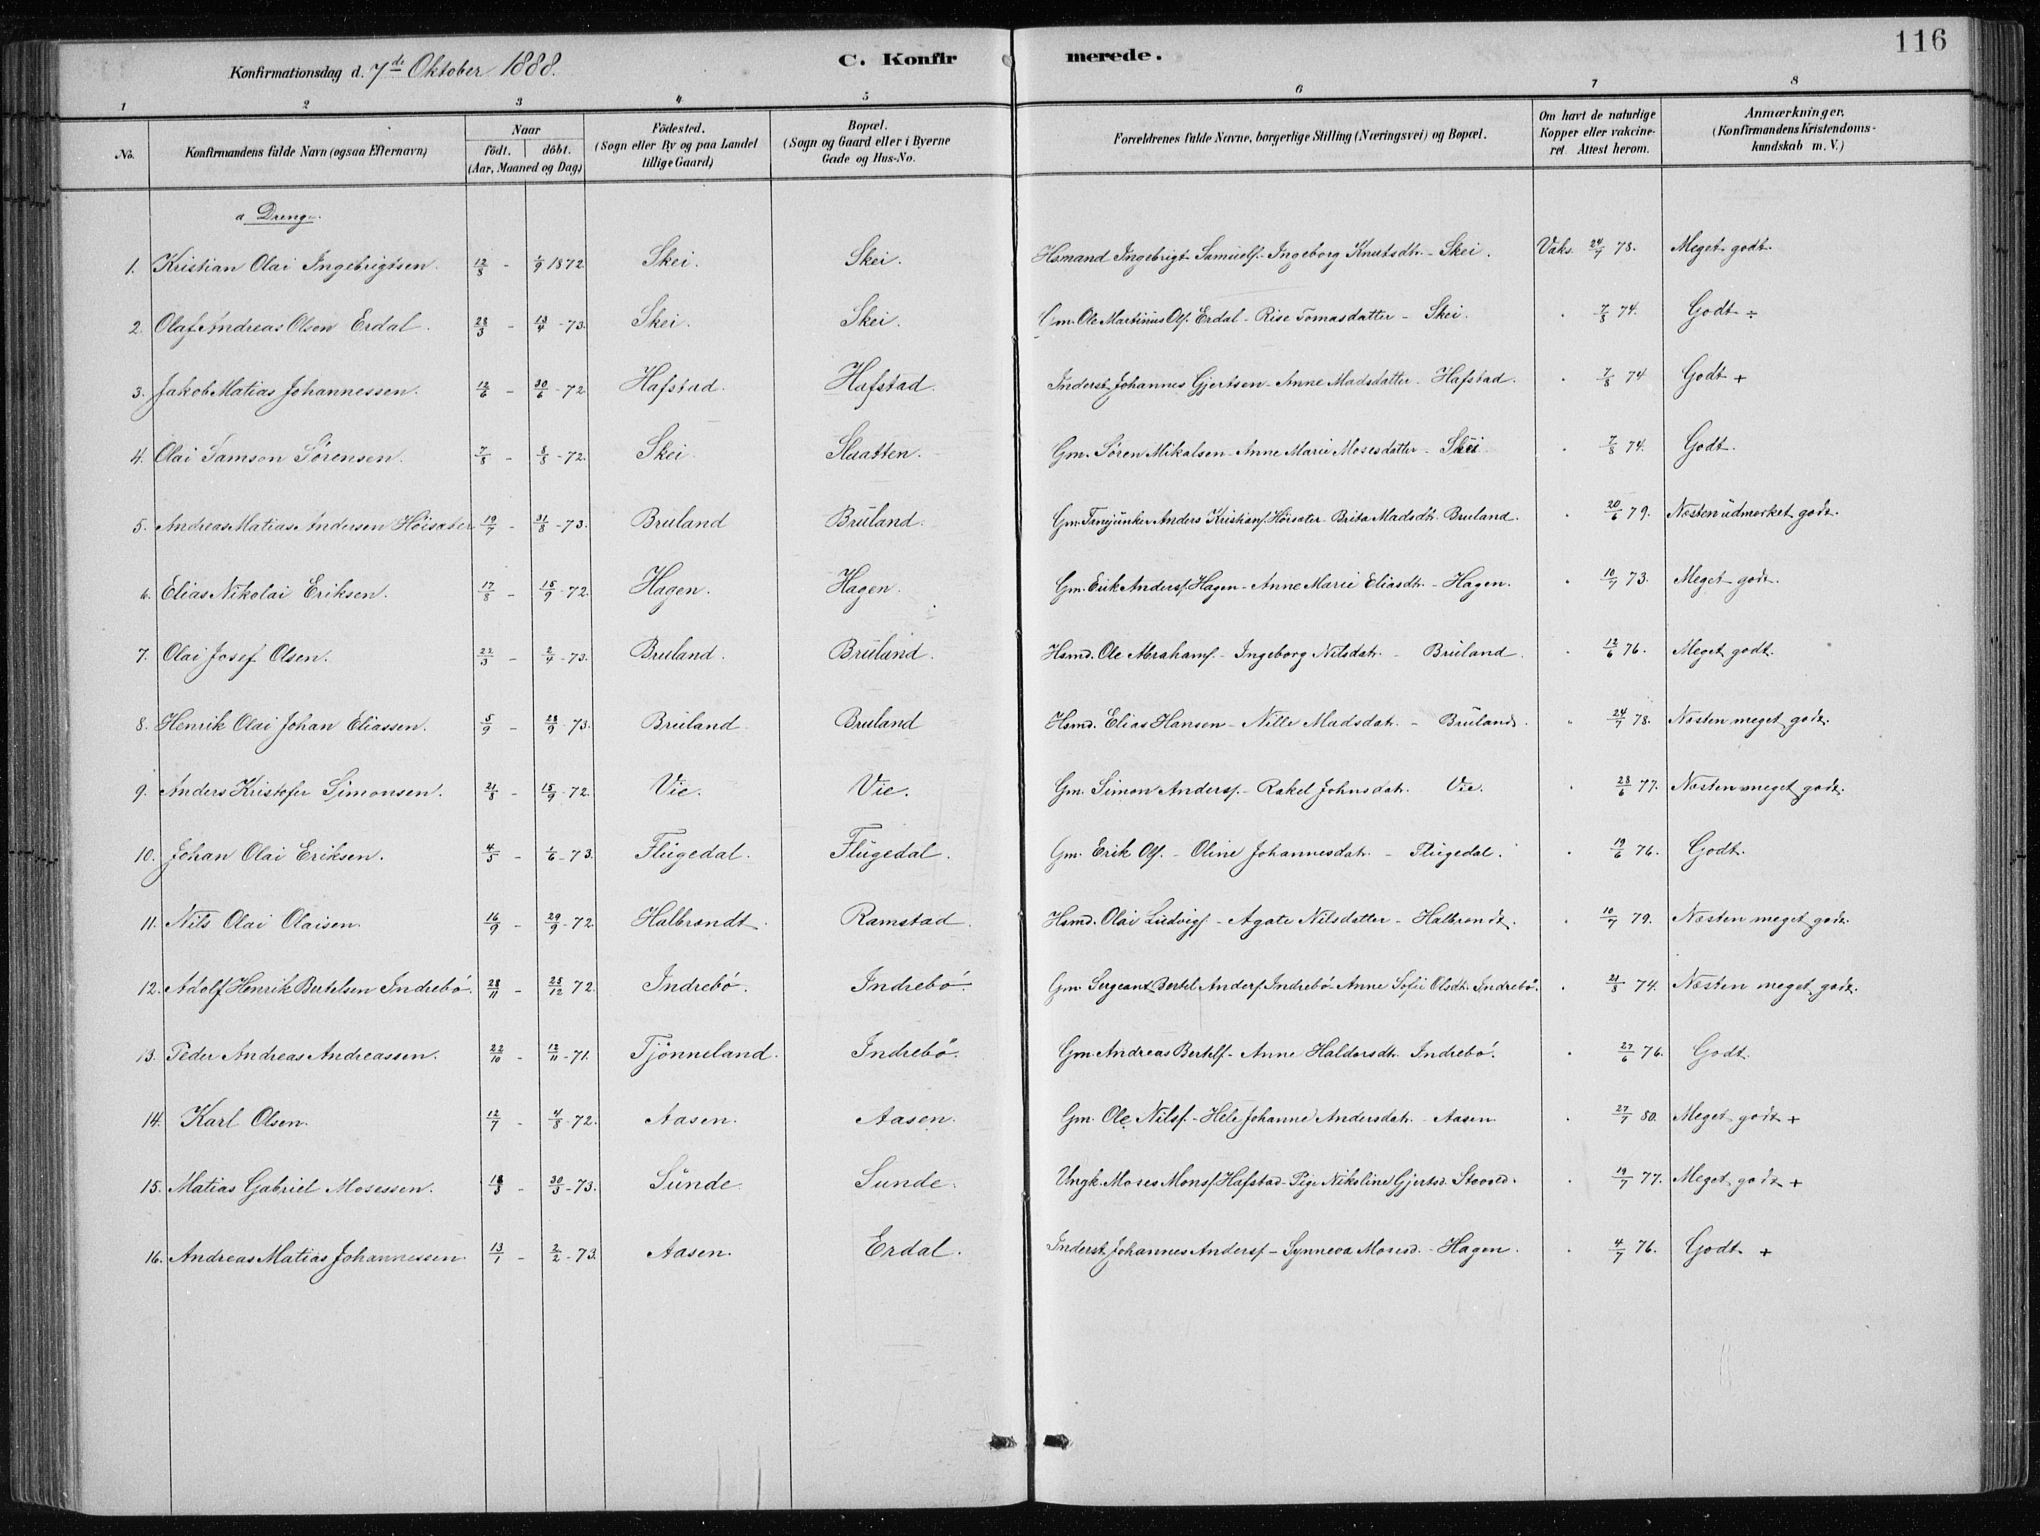 116
Konfirmationsdag d. 7de Oktober 1888.
C. Konfirmerede.
1 2 3 4 5 6 7 8
No.
Konfirmandens fulde Navn (ogsaa Efternavn)
Naar
født. døbt.
(Aar, Maaned og Dag)
Fødested.
(Sogn eller By og paa Landet
tillige Gaard)
Bopæl.
(Sogn og Gaard eller i Byerne
Gade og Hus-No.
Forældrenes fulde Navne, borgerlige Stilling (Næringsvei) og Bopæl.
Om havt de naturlige
Kopper eller vakcine-
ret. Attest herom.
Anmærkninger.
(Konfirmandens Kristendoms-
kundskab m. V.)
a Drenge.
1. Kristian Olai Ingebrigtsen. 12/8 - 1/9 1872. Skei. Skei. Hsmand Ingebrigt Samuels. - Ingeborg Knutsdtr. - Skei. Vaks. 24/7 78. Meget godt.
2. Olaf Andreas Olsen Erdal. 28/3 - 13/4 - 73. Skei. Skei. Gm. Ole Martinus Ols. Erdal - Rise Tomasdatter - Skei. " 7/8 74. Godt ÷
3. Jakob Matias Johannessen. 12/6 - 30/6 - 72. Hafstad. Hafstad. Inderst Johannes Gjertsen - Anne Madsdatter - Hafstad. " 7/8 74 Godt +
4. Olai Samson Sørensen. 7/8 - 8/8 - 72. Skei. Slaatten. Gm. Søren Mikalsen - Anne Marie Mosesdatter - Skei " 7/8 74. Godt.
5. Andreas Matias Andersen Høisæter 19/7 - 31/8 - 73. Bruland Bruland. Gm. Furejunker Anders Kristians. Høisæter - Brita Madsdtr. Bruland. " 20/6 79. Næsten udmærket godt.
6. Elias Nikolai Eriksen. 17/8 - 15/9 - 72. Hagen. Hagen. Gm. Erik Anders. Hagen - Anne Marie Eliasdtr. - Hagen. " 10/7 73. Meget godt.
7. Olai Josef Olsen. 22/3 - 2/4 - 73. Bruland. Bruland. Hsmd. Ole Abrahams. - Ingeborg Nilsdatr. - Bruland. " 12/6 76. Meget godt.
8. Henrik Olai Johan Eliassen. 5/9 - 28/9 - 73. Bruland. Bruland Hsmd. Elias Hansen - Nille Madsdatr. - Bruland. " 24/7 78. Næsten meget godt.
9. Anders Kristofer Simonsen. 21/8 - 15/9 - 72. Vie. Vie. Gm. Simon Anders. - Rakel Johnsdatr. Vie. " 28/6 77. Næsten meget godt.
10. Johan Olai Eriksen. 4/5 - 1/6 - 73. Flugedal. Flugedal. Gm. Erik Ols. - Oline Johannesdatr. - Flugedal. " 19/6 76. Godt.
11. Nils Olai Olaisen. 16/9 - 29/9 - 72. Halbrendt. Ramstad. Hsmd. Olai Ludvigs. - Agate Nilsdatter - Halbrendt. " 10/7 79. Næsten meget godt.
12. Adolf Henrik Bertelsen Indrebø. 28/11 - 25/12 72. Indrebø. Indrebø. Gm. Sergeant Bertel Anders. Indrebø - Anne Sofie Olsdtr. Indrebø. " 21/8 74. Næsten meget godt.
13. Peder Andreas Andreassen. 22/10 - 12/11 - 71. Tjønneland. Indrebø. Gm. Andreas Bertels. - Anne Haldorsdtr. Indrebø. " 27/6 76. Godt.
14. Karl Olsen. 12/7 - 4/8 - 72. Aasen. Aasen. Gm. Ole Nils. - Hele Johanne Andersdatr. - Aasen. " 27/7 80. Meget godt +
15. Matias Gabriel Mosessen. 18/3 - 30/3 - 73. Sunde. Sunde. Ungk. Moses Mons. Hafstad - Pige Nikoline Gjertsd. " 19/7 77. Meget godt +
16. Andreas Matias Johannessen 13/1 - 2/2 - 73. Aasen. Erdal. Inderst Johannes Anders. - Synneva Mosesd. - Hagen. " 4/7 76. Godt +